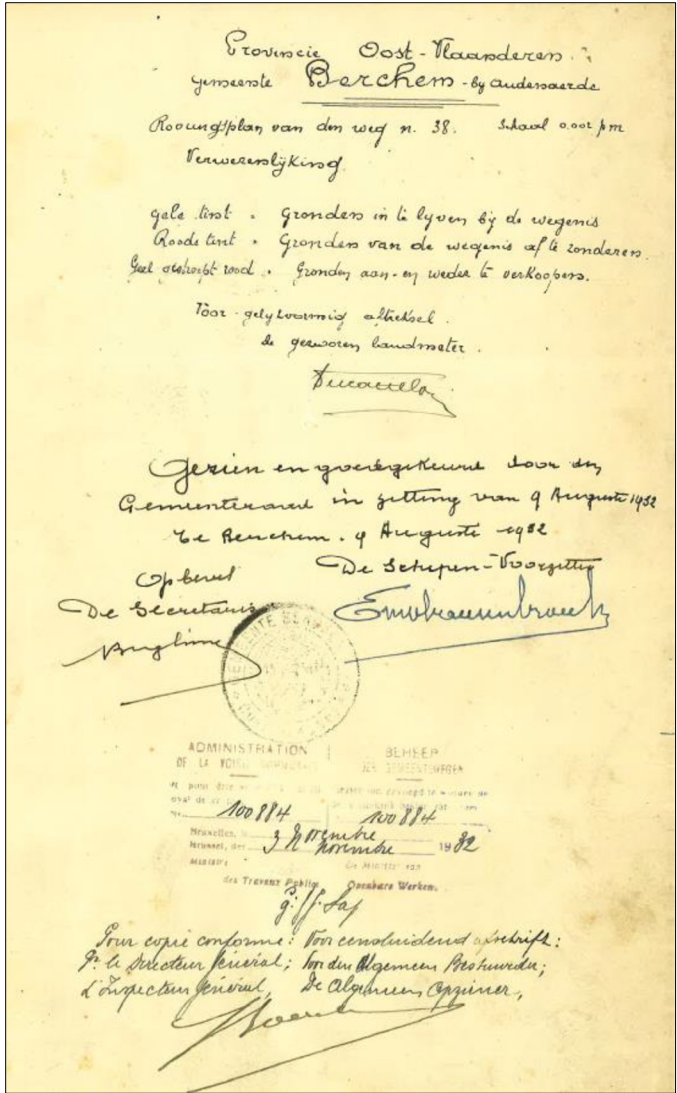 Provincie Oost-Vlaanderen.
gemeente Berchem - by audenaerde
Rooiingsplan van den weg n. 38. Schaal 0.002 p m
Verwezenlijking.
gele tint = Gronden in te lyven bij de wegenis
Roode tint = Gronden van de wegenis af te zonderen.
Geel gestreept rood = Gronden aan- en weder te verkoopen.
Voor gelyvormig aftreksel.
de gezworen landmeter.
Gezien en goedgekeurd door den
Gemeenteraad in zitting van 9 Augusti 1932
te Berchem. 9 Augusti 1932
Op bevel De Schepen-Voorzitter
De Secretaris
ADMINISTRATION BEHEER
DE LA VOIRIE COMMUNALE DER GEMEENTEWEGEN
100884 100884
Bruxelles, le 3 Novembre
Brussel, den novembre 1932
De Minister van
des Travaux Publics Openbare Werken.
Pour copie conforme: Voor eensluidend afschrift:
Pr le Directeur Général; Voor den Algemeen Bestuurder;
L'Inspecteur Général, De Algemeen Opziener,